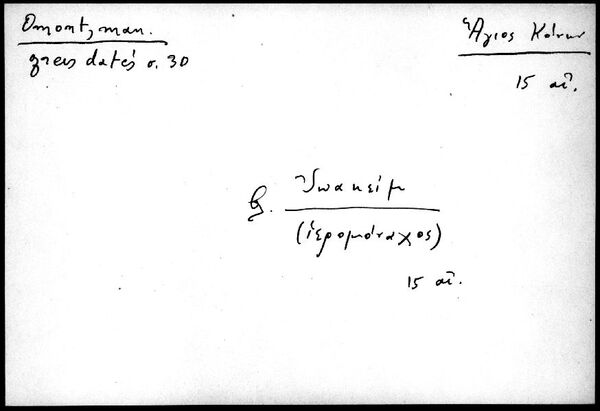 Omont, man.
grecs datés σ. 30
Ἅγιος Κόνων
15 αἰ.
β. Ἰωακείμ
(ἱερομόναχος)
15 αἰ.